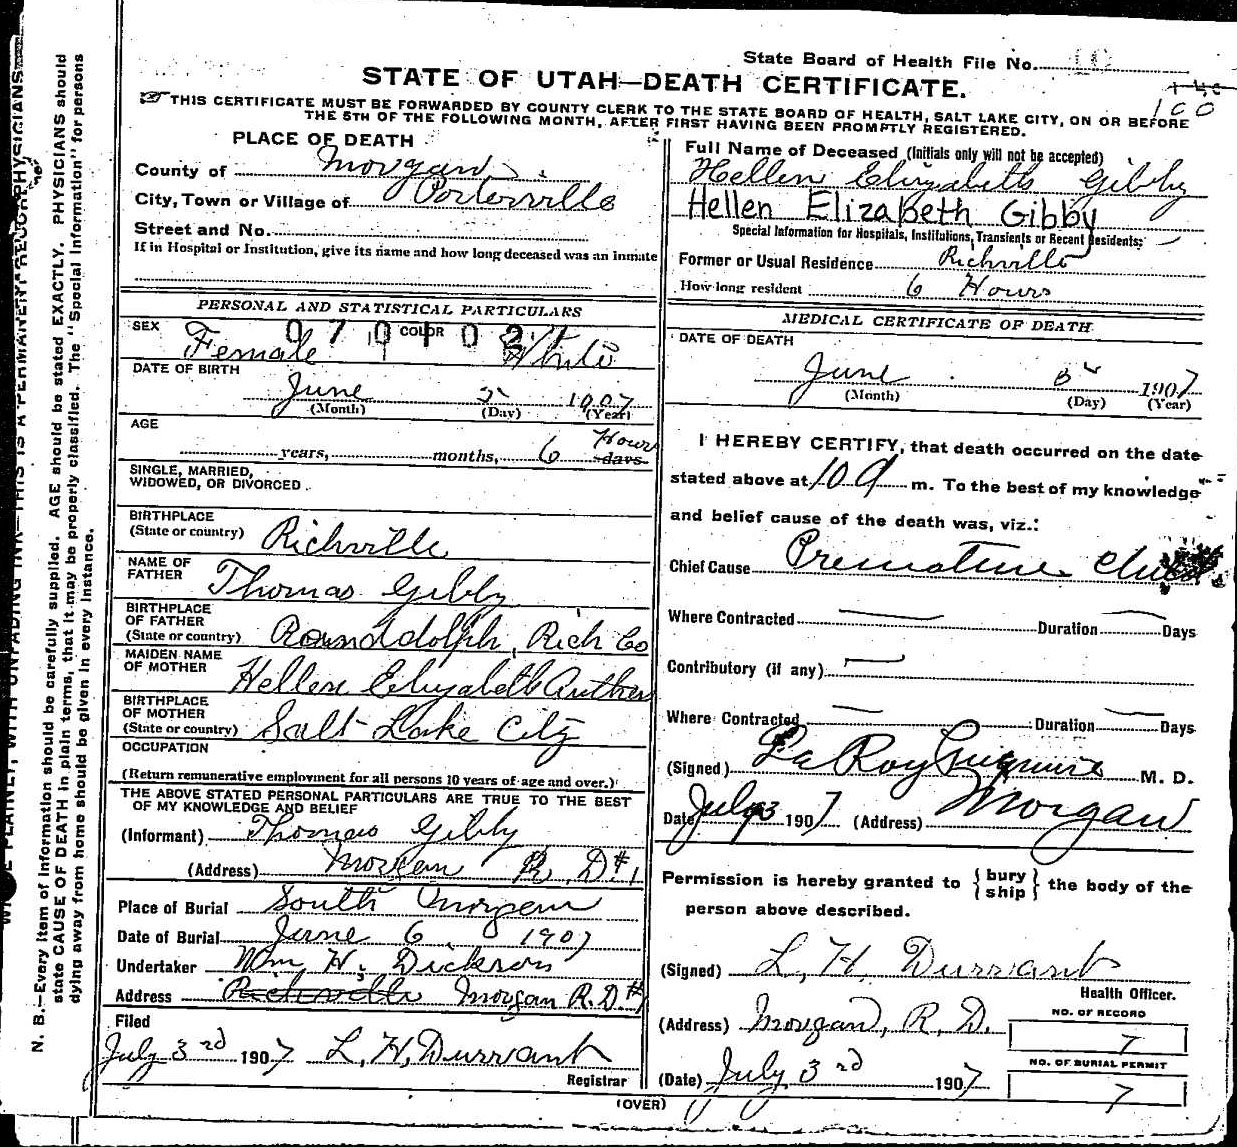 State Board of Health File No.
STATE OF UTAH—DEATH CERTIFICATE.
100
THIS CERTIFICATE MUST BE FORWARDED BY COUNTY CLERK TO THE STATE BOARD OF HEALTH, SALT LAKE CITY, ON OR BEFORE
THE 5TH OF THE FOLLOWING MONTH, AFTER FIRST HAVING BEEN PROMPTLY REGISTERED.
PLACE OF DEATH
County of Morgan
City, Town or Village of Porterville
Street and No.
If in Hospital or Institution, give its name and how long deceased was an inmate
PERSONAL AND STATISTICAL PARTICULARS
SEX Female COLOR White
DATE OF BIRTH
June 5 1907
(Month) (Day) (Year)
AGE
years, months, 6 Hours days
SINGLE, MARRIED,
WIDOWED, OR DIVORCED
BIRTHPLACE
(State or country) Richville
NAME OF
FATHER Thomas Gibby
BIRTHPLACE
OF FATHER
(State or country) Rounddolph, Rich Co
MAIDEN NAME
OF MOTHER Hellen Elizabeth
BIRTHPLACE
OF MOTHER
(State or country) Salt Lake City
OCCUPATION
(Return remunerative employment for all persons 10 years of age and over.)
THE ABOVE STATED PERSONAL PARTICULARS ARE TRUE TO THE BEST
OF MY KNOWLEDGE AND BELIEF
(Informant) Thomas Gibby
(Address) Morgan R. D. #1
Place of Burial South Morgan
Date of Burial June 6 1907
Undertaker Wm H. Dickson
Address Richville Morgan R. D. #1
Filed
July 3rd 1907 L. H. Durrant
Registrar
Full Name of Deceased (Initials only will not be accepted)
Hellen Elizabeth Gibby
Hellen Elizabeth Gibby
Special Information for Hospitals, Institutions, Transients or Recent Residents;
Former or Usual Residence Richville
How long resident 6 Hours
MEDICAL CERTIFICATE OF DEATH
DATE OF DEATH
June 5 1907
(Month) (Day) (Year)
I HEREBY CERTIFY, that death occurred on the date
stated above at 10 a m. To the best of my knowledge
and belief cause of the death was, viz.:
Chief Cause Premature Child
Where Contracted Duration Days
Contributory (if any)
Where Contracted Duration Days
(Signed) LeRoy M. D.
Date July 3 1907 (Address) Morgan
Permission is hereby granted to { bury ship } the body of the
person above described.
(Signed) L. H. Durrant
Health Officer.
(Address) Morgan, R. D.
NO. OF RECORD
7
(Date) July 3rd 1907
NO. OF BURIAL PERMIT
7
(OVER)
N. B.—Every item of information should be carefully supplied. AGE should be stated EXACTLY. PHYSICIANS should
state CAUSE OF DEATH in plain terms, that it may be properly classified. The "Special Information" for persons
dying away from home should be given in every instance.